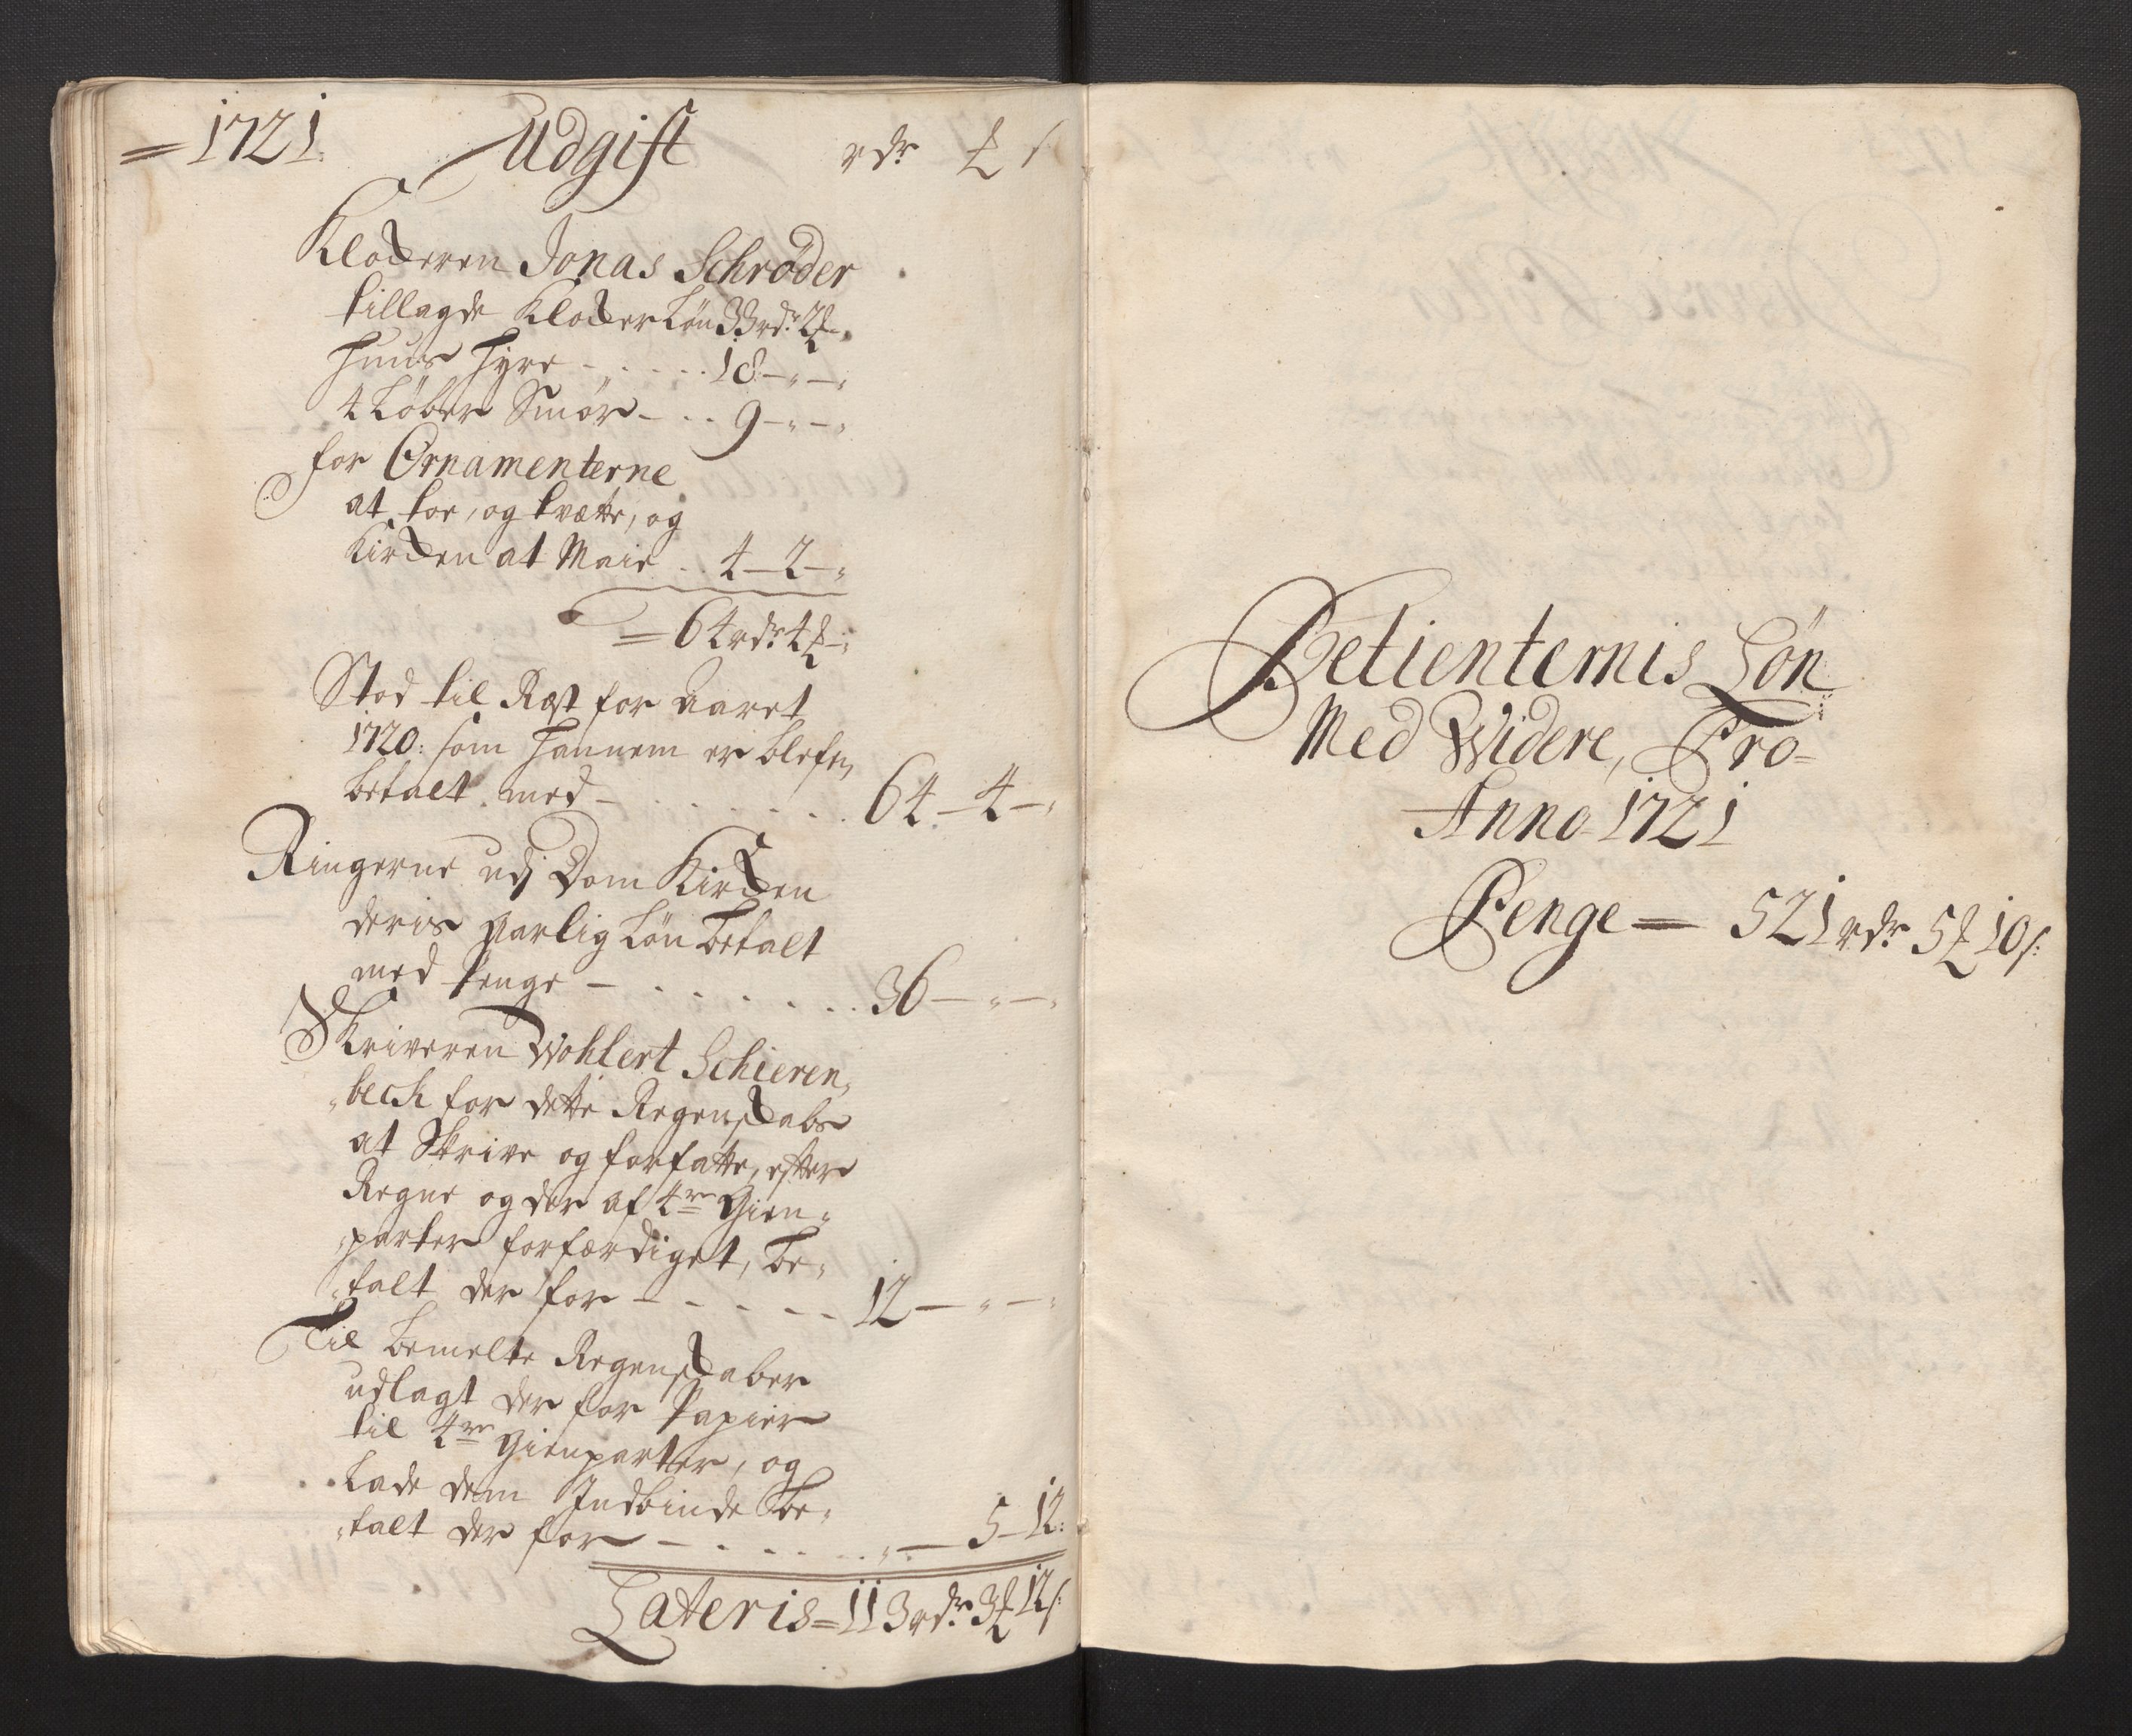 = 1721. Udgift rdr ₰ s
Klockeren Jonas Schrøder
tillagde Klocker Løn 33 rdr: 2 ₰ - "
Huus Hyre - . . . . 18 - " - "
4 Løber Smør - . . 9 - " - "
for Ornamenterne
at toe, og tvætte, og
Kircken at Maie . . 4 - 2 - "
= 64 rdr: 4 ₰ - "
Stod til Ræst for Aaret
1720: som hannem er blefn
betalt med - . . . . . . . 64 - 4 - "
Ringerne udj Dom Kircken
deris Aarlig Løn betalt
med Penge - . . . . . . . 36 - " - "
Skriveren Wohlert Schieren,
"beck for dette Regenskabs
at Skrive og forfatte, efter
Regne og der af 4re Gien=
"parter forfærdiget, be=
"talt der for - - - - - - 12 - " - "
Til bemelte Regenskaber
udlagt der for Papier
til 4re Gienparter, og
Lade dem Indbinde be=
"talt der for - . . . . . " - 5 - 12:
Lateris = 113 rdr: 3 ₰ 12 s:
Betienternis Løn
Med Widere, Pro=
Anno 1721
Penge = 521 rdr 5 ₰ 10 s: